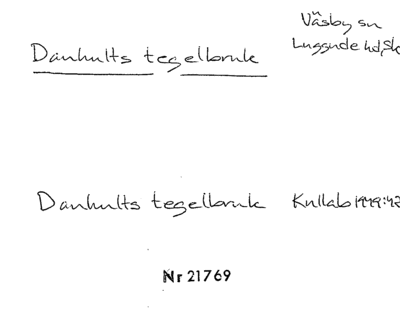 Väsby sn
Luggude hd, Sk
Danhults tegelbruk
Danhults tegelbruk Kullab 1949:42
Nr 21769